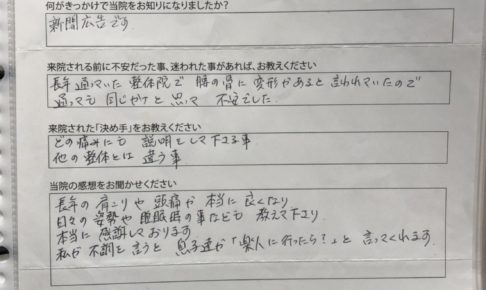 何がきっかけで当院をお知りになりましたか?
新聞広告です
来院される前に不安だった事、迷われた事があれば、お教えください
長年通っていた整体院で 腰の骨に変形があると言われていたので
通っても 同じかと思って 不安でした.
来院された「決め手」をお教えください
どの痛みにも 説明をして下さる事
他の整体とは 違う事
当院の感想をお聞かせください
長年の肩こりや頭痛が 本当に良くなり
日々の姿勢や睡眠時の事なども 教えて下さり
本当に感謝しております
私が不調を言うと 息子達が「楽人に行ったら?」と言ってくれます.